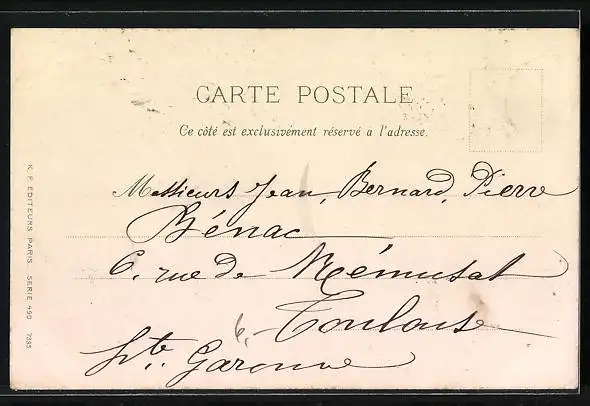 CARTE POSTALE
Ce côté est exclusivement réservé a l'adresse.
Messieurs Jean, Bernard, Pierre
Bénac
6, rue de Rémusat
Toulouse
Hte. Garonne
6.-
K. F. EDITEURS, PARIS SERIE 490 7385